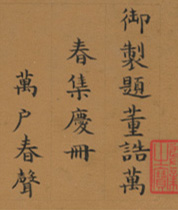 御製題董誥萬
春集慶冊
萬戶春聲